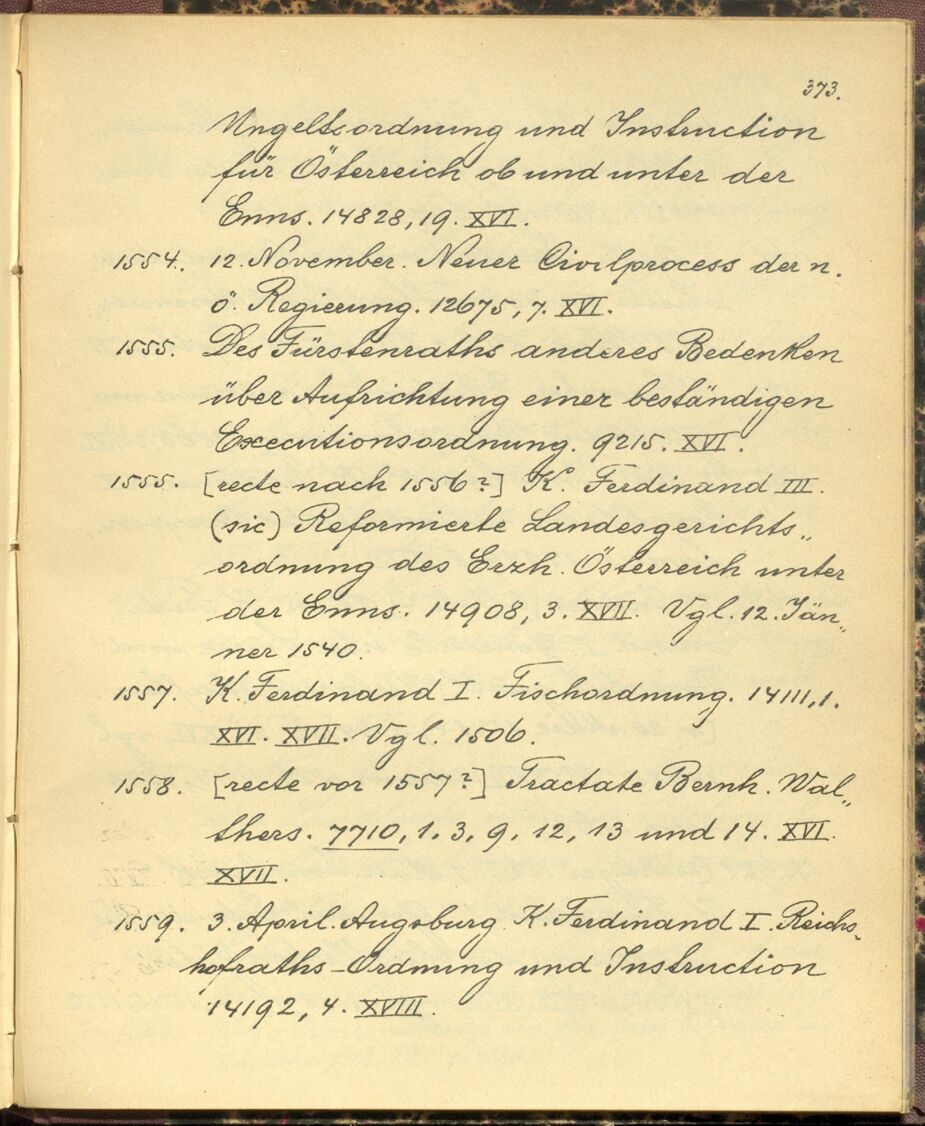 373.
Ungeltsordnung und Instruction
für Österreich ob und unter der
Enns. 14828, 19. XVI.
1554. 12. November. Neuer Civilprocess der n.
ö. Regierung. 12675, 7. XVI.
1555. Des Fürstenraths anderes Bedenken
über Aufrichtung einer beständigen
Executionsordnung. 9215. XVI.
1555. [recte nach 1556?] K. Ferdinand III.
(sic) Reformierte Landesgerichts„
ordnung des Erzh. Österreich unter
der Enns. 14908, 3. XVII. Vgl. 12. Jän„
ner 1540.
1557. K. Ferdinand I. Fischordnung. 14111, 1.
XVI. XVII. Vgl. 1506.
1558. [recte vor 1557?] Tractate Bernh. Wal„
thers. 7710, 1. 3, 9, 12, 13 und 14. XVI.
XVII.
1559. 3. April. Augsburg. K. Ferdinand I. Reichs„
hofraths-Ordnung und Instruction
14192, 4. XVIII.